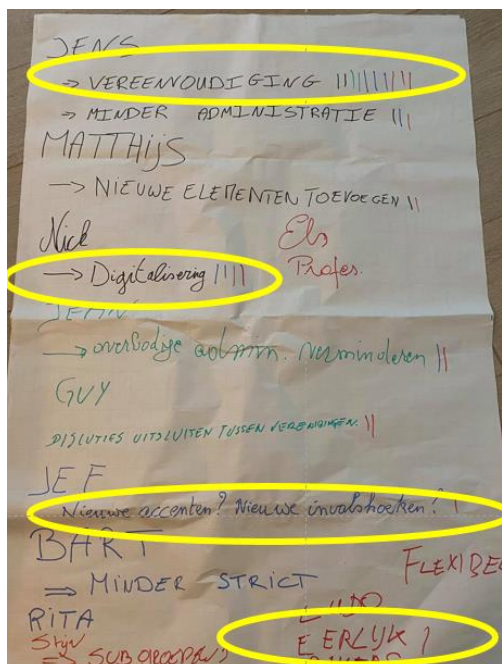 JENS
→ VEREENVOUDIGING
→ MINDER ADMINISTRATIE
MATTHIJS
→ NIEUWE ELEMENTEN TOEVOEGEN
Nick
→ Digitalisering
Els
Profes.
→ overbodige admin. verminderen
GUY
DISCUTIES UITSLUITEN TUSSEN VERENIGINGEN.
JEF
Nieuwe accenten? Nieuwe invalshoeken?
BART
⇒ MINDER STRICT
FLEXIBEL
RITA
LUDO
EERLIJK
Stijn
⇒ SUBGROEPEN